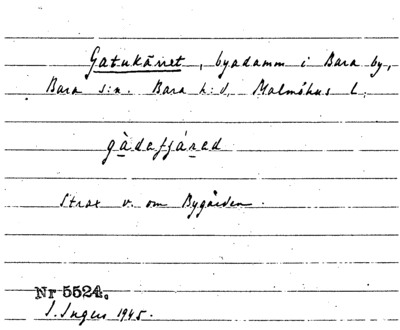 Gatukäret, byadamm i Bara by,
Bara s:n. Bara h:d, Malmöhus l.
gàdefjáred
Strax v. om Bygården.
Nr 5524.
I. Ingers 1945.